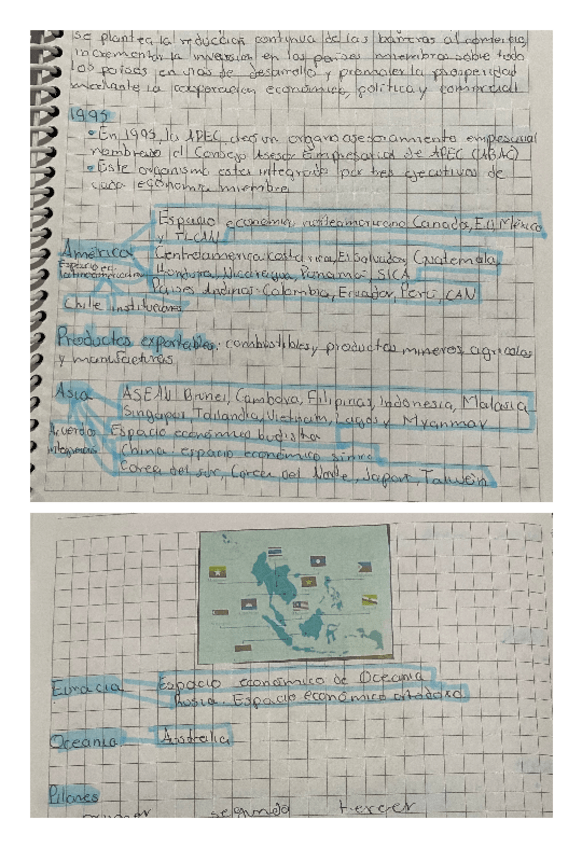 se plantea la reducción continua de las barreras al comercio,
incrementar la inversion en los paises miembros sobre todo
los paises en vias de desarrollo y promover la prosperidad
mediante la cooperación económica, política y comercial.
1995
• En 1995 la APEC, creo un organo asesoramiento empresarial
nombrado el Consejo Asesor Empresarial de APEC (ABAC)
• Este organismo esta integrado por tres ejecutivos de
cada economia miembro
Espacio economico norteamericano Canadá, E.U, México
y TLCAN
América
Centroamerica: costa rica, El Salvador, Guatemala,
Espacio ec
latinoamericano
Honduras, Nicaragua, Panamá, SICA
Paises Andinos: Colombia, Ecuador, Perú, CAN
Chile instituciones
Productos exportables: combustibles y productos mineros, agricolas
y manufacturas
Asia
ASEAN Brunei, Camboya, Filipinas, Indonesia, Malasia
Singapur, Tailandia, Vietnam, Laos y Myanmar
Acuerdos
Espacio económico budista
China: espacio económico
Corea del sur, Corea del Norte, Japon, Taiwein
Euracia
Espacio económico de Oceania
Rusia: Espacio económico ortodoxo
Oceania
Australia
Pilares
primer segundo tercer